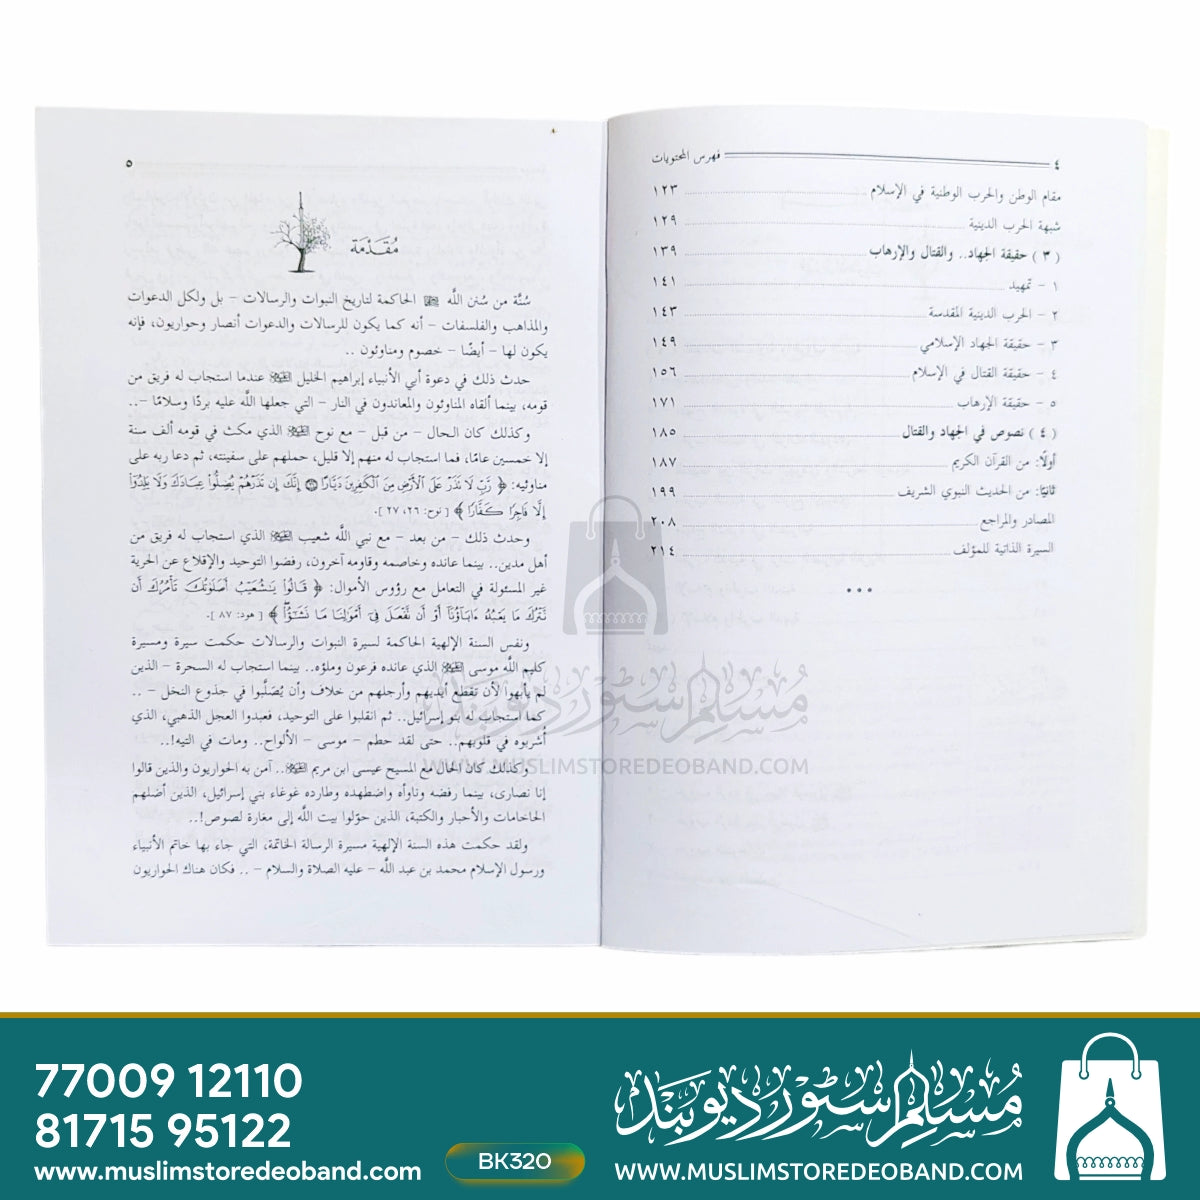 ٤ فهرس المحتويات
مقام الوطن والحرب الوطنية في الإسلام ١٢٣
شبهة الحرب الدينية ١٢٩
( ٣ ) حقيقة الجهاد.. والقتال والإرهاب ١٣٩
١ - تمهيد ١٤١
٢ - الحرب الدينية المقدسة ١٤٣
٣ - حقيقة الجهاد الإسلامي ١٤٩
٤ - حقيقة القتال في الإسلام ١٥٦
٥ - حقيقة الإرهاب ١٧١
( ٤ ) نصوص في الجهاد والقتال ١٨٥
أولًا: من القرآن الكريم ١٨٧
ثانيًا: من الحديث النبوي الشريف ١٩٩
المصادر والمراجع ٢٠٨
السيرة الذاتية للمؤلف ٢١٤
٥
مُقَدِّمَة
سُنَّة من سُنن اللَّه ﷻ الحاكمة لتاريخ النبوات والرسالات - بل ولكل الدعوات
والمذاهب والفلسفات - أنه كما يكون للرسالات والدعوات أنصار وحواريون، فإنه
يكون لها - أيضًا - خصوم ومناوئون ..
حدث ذلك في دعوة أبي الأنبياء إبراهيم الخليل عندما استجاب له فريق من
قومه، بينما ألقاه المناوئون والمعاندون في النار - التي جعلها اللَّه عليه بردًا وسلامًا -..
وكذلك كان الحال - من قبل - مع نوح الذي مكث في قومه ألف سنة
إلا خمسين عامًا، فما استجاب له منهم إلا قليل، حملهم على سفينته، ثم دعا ربه على
مناوئيه: ﴿ رَّبِّ لَا تَذَرْ عَلَى ٱلْأَرْضِ مِنَ ٱلْكَٰفِرِينَ دَيَّارًا ۝ إِنَّكَ إِن تَذَرْهُمْ يُضِلُّوا۟ عِبَادَكَ وَلَا يَلِدُوٓا۟
إِلَّا فَاجِرًا كَفَّارًا ﴾ [ نوح: ٢٦، ٢٧ ].
وحدث ذلك - من بعد - مع نبي اللَّه شعيب الذي استجاب له فريق من
أهل مدين.. بينما عانده وخاصمه وقاومه آخرون، رفضوا التوحيد والإقلاع عن الحرية
غير المسئولة في التعامل مع رؤوس الأموال: ﴿ قَالُوا۟ يَٰشُعَيْبُ أَصَلَوٰتُكَ تَأْمُرُكَ أَن
نَّتْرُكَ مَا يَعْبُدُ ءَابَآؤُنَآ أَوْ أَن نَّفْعَلَ فِىٓ أَمْوَٰلِنَا مَا نَشَٰٓؤُا۟ ﴾ [ هود: ٨٧ ].
ونفس السنة الإلهية الحاكمة لسيرة النبوات والرسالات حكمت سيرة ومسيرة
كليم اللَّه موسى الذي عانده فرعون وملؤه.. بينما استجاب له السحرة - الذين
لم يأبهوا لأن تقطع أيديهم وأرجلهم من خلاف وأن يُصَلَّبوا في جذوع النخل - ..
كما استجاب له بنو إسرائيل.. ثم انقلبوا على التوحيد، فعبدوا العجل الذهبي، الذي
أشربوه في قلوبهم.. حتى لقد حطم - موسى - الألواح.. ومات في التيه!..
وكذلك كان الحال مع المسيح عيسى ابن مريم .. آمن به الحواريون والذين قالوا
إنا نصارى، بينما رفضه وناوأه واضطهده وطارده غوغاء بني إسرائيل، الذين أضلهم
الحاخامات والأحبار والكتبة، الذين حوّلوا بيت اللَّه إلى مغارة لصوص!..
ولقد حكمت هذه السنة الإلهية مسيرة الرسالة الخاتمة، التي جاء بها خاتم الأنبياء
ورسول الإسلام محمد بن عبد اللَّه - عليه الصلاة والسلام - .. فكان هناك الحواريون
مسلم سٹور دیوبند
WWW.MUSLIMSTOREDEOBAND.COM
77009 12110
81715 95122
www.muslimstoredeoband.com
BK320
مسلم سٹور دیوبند
WWW.MUSLIMSTOREDEOBAND.COM